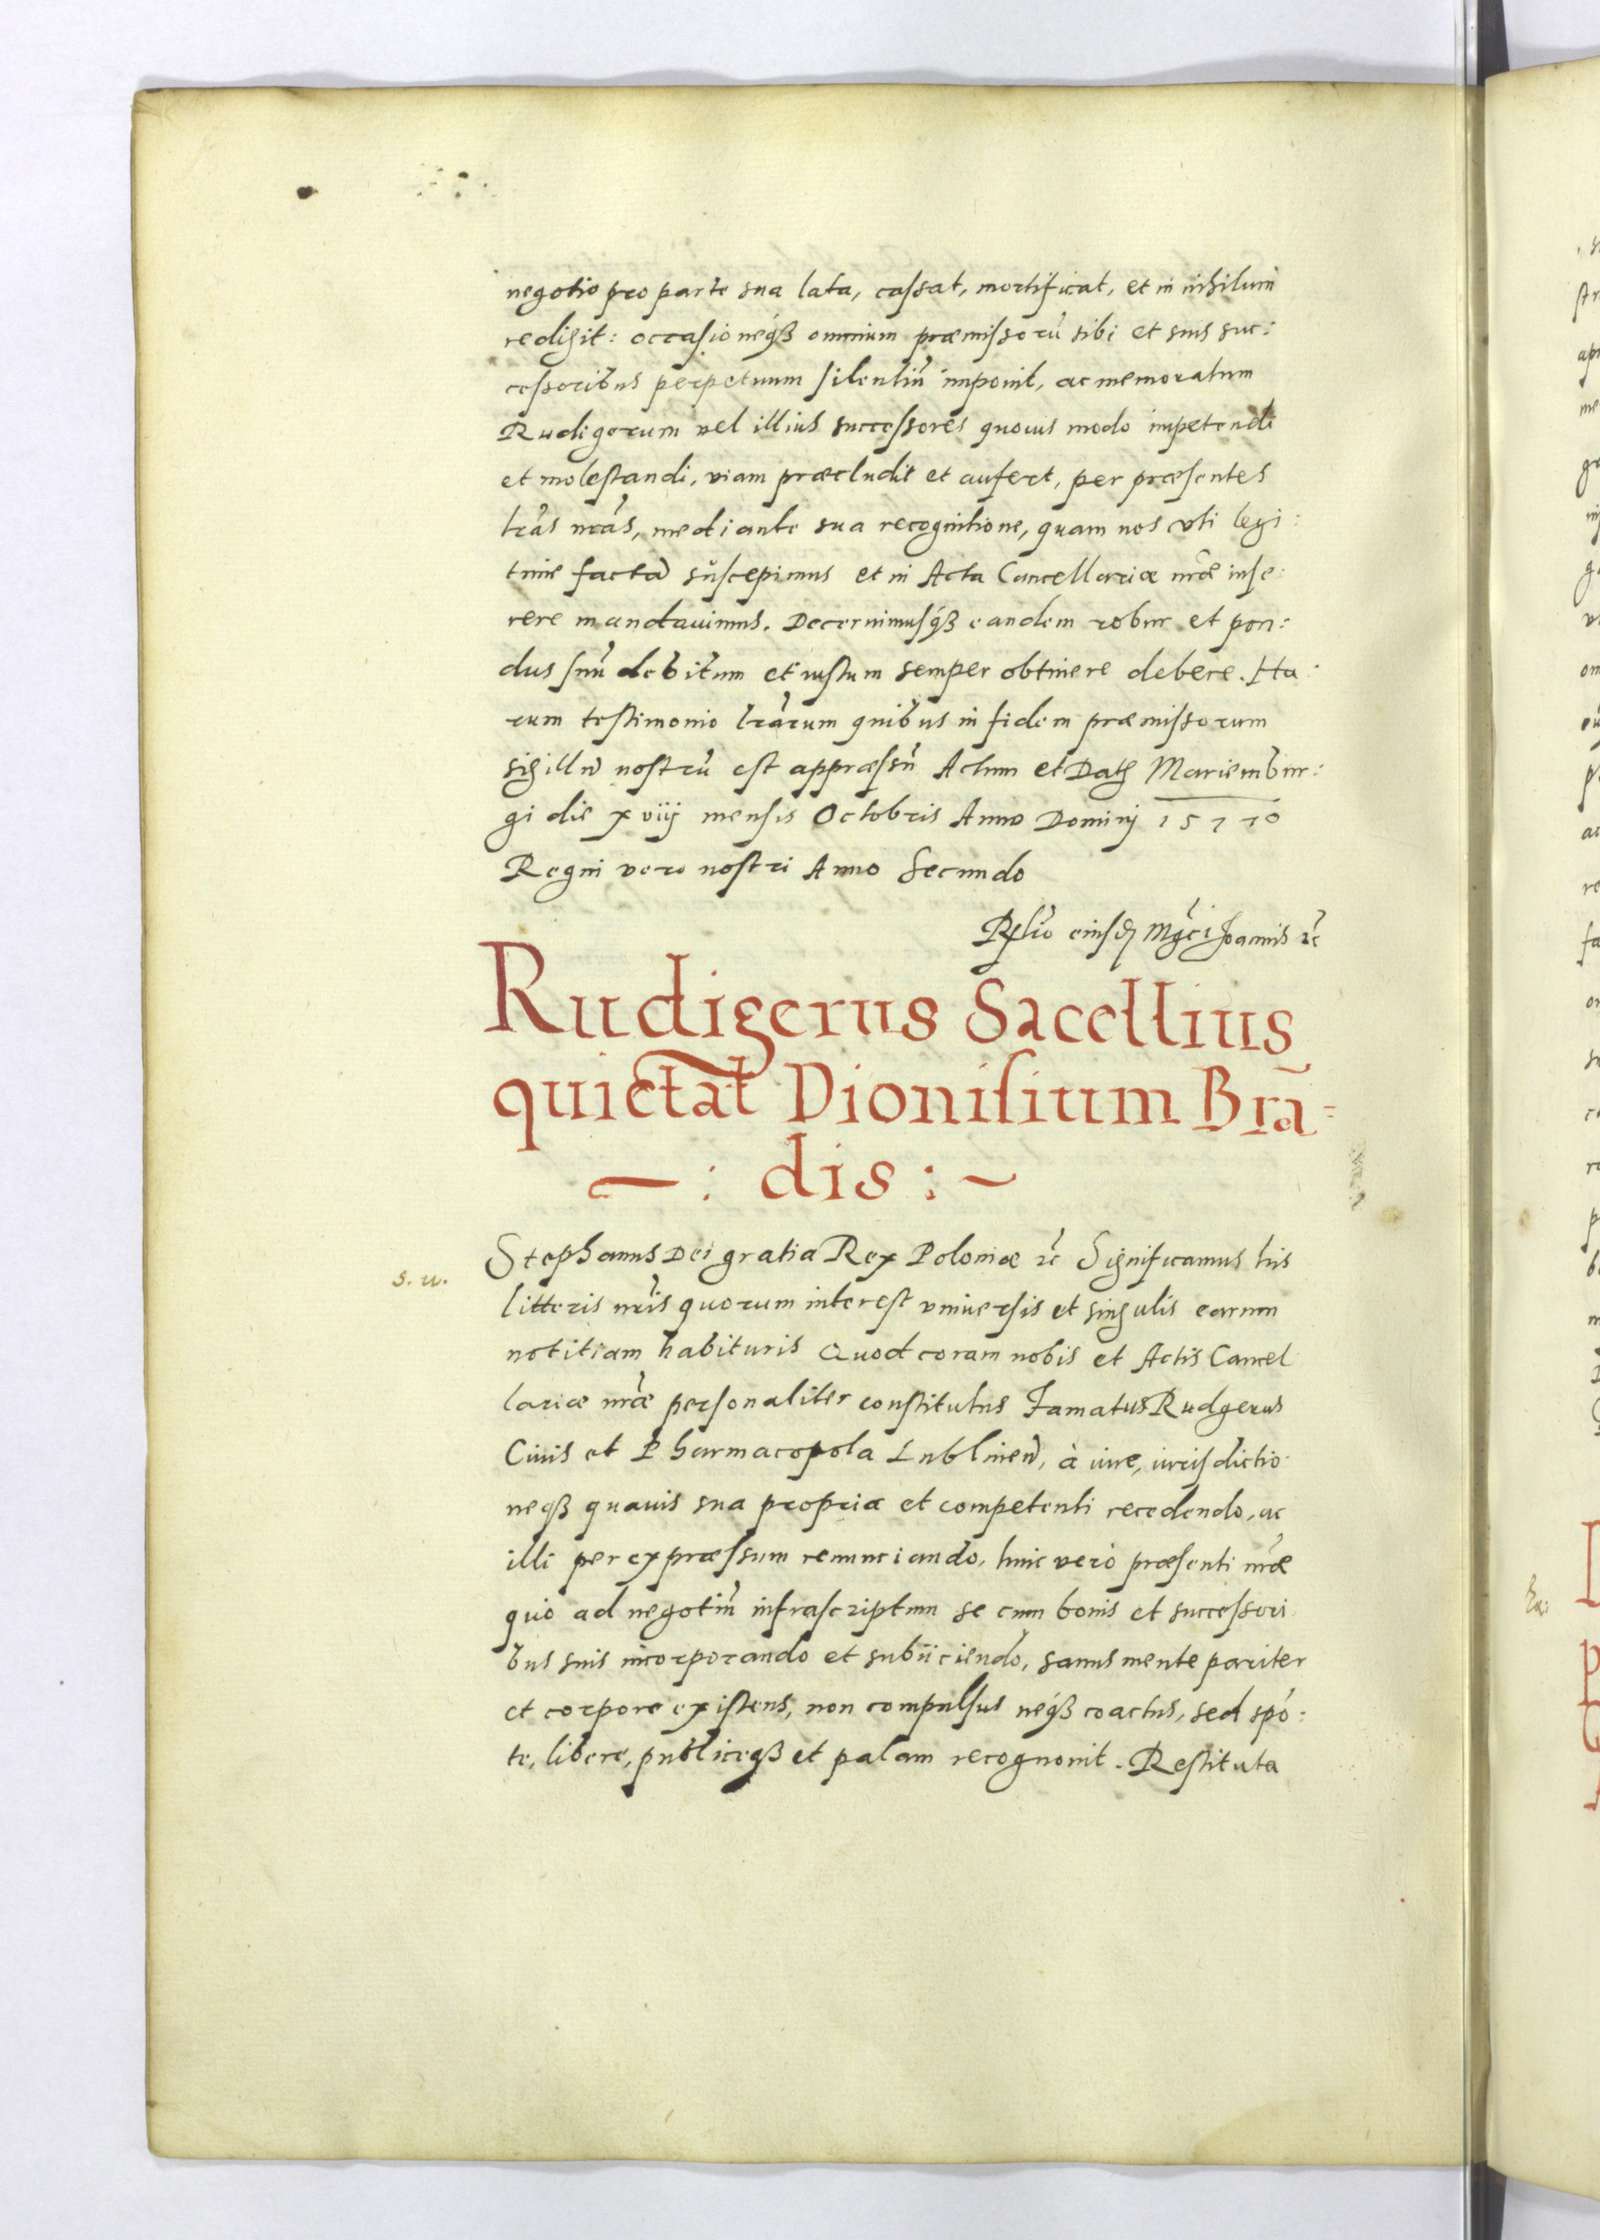 negotio pro parte sua lata, cassat, mortificat, et in nihilum
redigit: occasioneq́ꝫ omnium præmissorũ sibi et suis suc:
cessoribus perpetuum silentiũ imponit, ac memoratum
Rudigerum vel illius successores quouis modo impetendi
et molestandi, viam præcludit et aufert, per præsentes
lrãs nrãs, mediante sua recognitione, quam nos vti legi:
time factã suscepimus et in Acta Cancellariæ nrãe inse:
rere mandauimus. Decernimusq́ꝫ eandem robur et pon:
dus suũ debitum et iustum semper obtinere debere. Ha:
rum testimonio lrãrum quibus in fidem præmissorum
sigillũ nostrũ est appræssũ Actum et Datꝫ Mariembur:
gi die xviij mensis Octobris Anno Dominj 1577o
Regni vero nostri Anno Secundo
Rĺlio eiusdꝫ Mgc̃i Joannis ꝛc̃
Rudigerus Sacellius
quietat Dionisium Brã=
: dis :
s. u.
Stephanus Dei gratia Rex Poloniæ ꝛc̃ Significamus his
litteris nrĩs quorum interest vniuersis et singulis earum
notitiam habituris Quod coram nobis et Actis Cancel
lariæ nrãe personaliter constitutus Famatus Rudgerus
Ciuis et Pharmacopola Lublineñ, à iure, iurisdictio
neqꝫ quauis sua propria et competenti recedendo, ac
illi per expræssum renunciando, huic verò præsenti nrãe
quo ad negotiũ infrascriptum se cum bonis et successori
bus suis incorporando et subijciendo, sanus mente pariter
et corpore existens, non compulsus neq́ꝫ coactus, sed spõ:
te, libere, publiceqꝫ et palam recognouit. Restituta